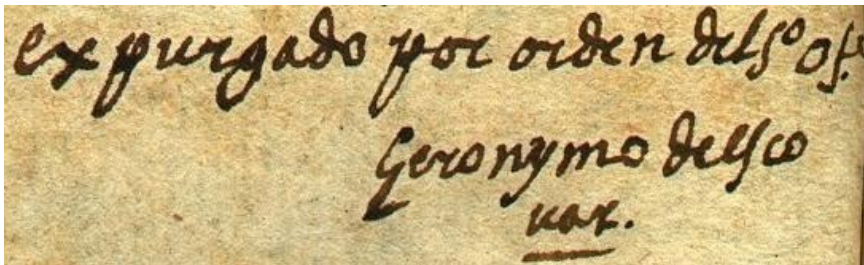 expurgado por orden del sº of.
Geronymo delsco
uar.